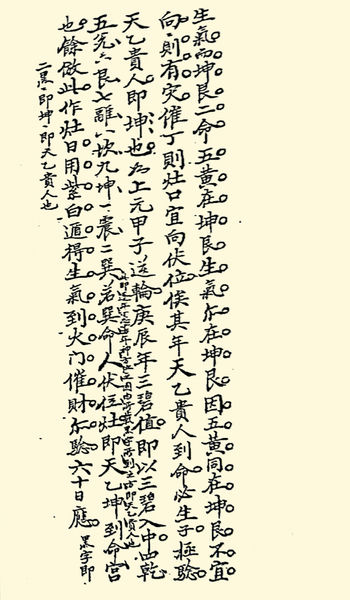 生氣而坤艮二命五黃在坤艮生氣亦在坤艮因五黃同在坤艮不宜
向則有災催丁則灶口宜向伏位俟其年天乙貴人到命必生子極驗
天乙貴人即坤也上元甲子逆輪庚辰年三碧值即以三碧入中四乾
所到之方即天乙貴人也
五兌六艮七離八坎九坤一震二巽若巽命人伏位灶即天乙坤到命宮
也餘倣此作灶日用紫白遁得生氣到火門催財亦驗六十日應 黑字即
二黑即坤即天乙貴人也